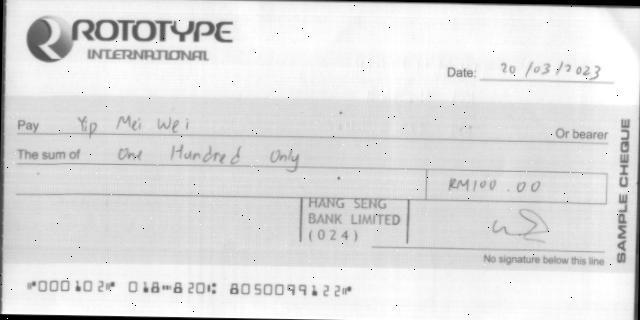 ROTOTYPE
INTERNATIONAL
Date: 20/03/2023
Pay Yip Mei Wei Or bearer
The sum of One Hundred Only
RM100.00
HANG SENG
BANK LIMITED
(024)
No signature below this line
SAMPLE CHEQUE
⑈000102⑈ 018⑉820⑆ 8050099122⑈